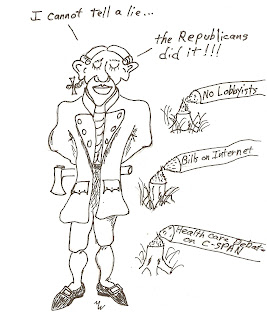 I cannot tell a lie...
the Republicans
did it!!!
No Lobbyists
Bills on Internet
Health Care Debate
on C-SPAN